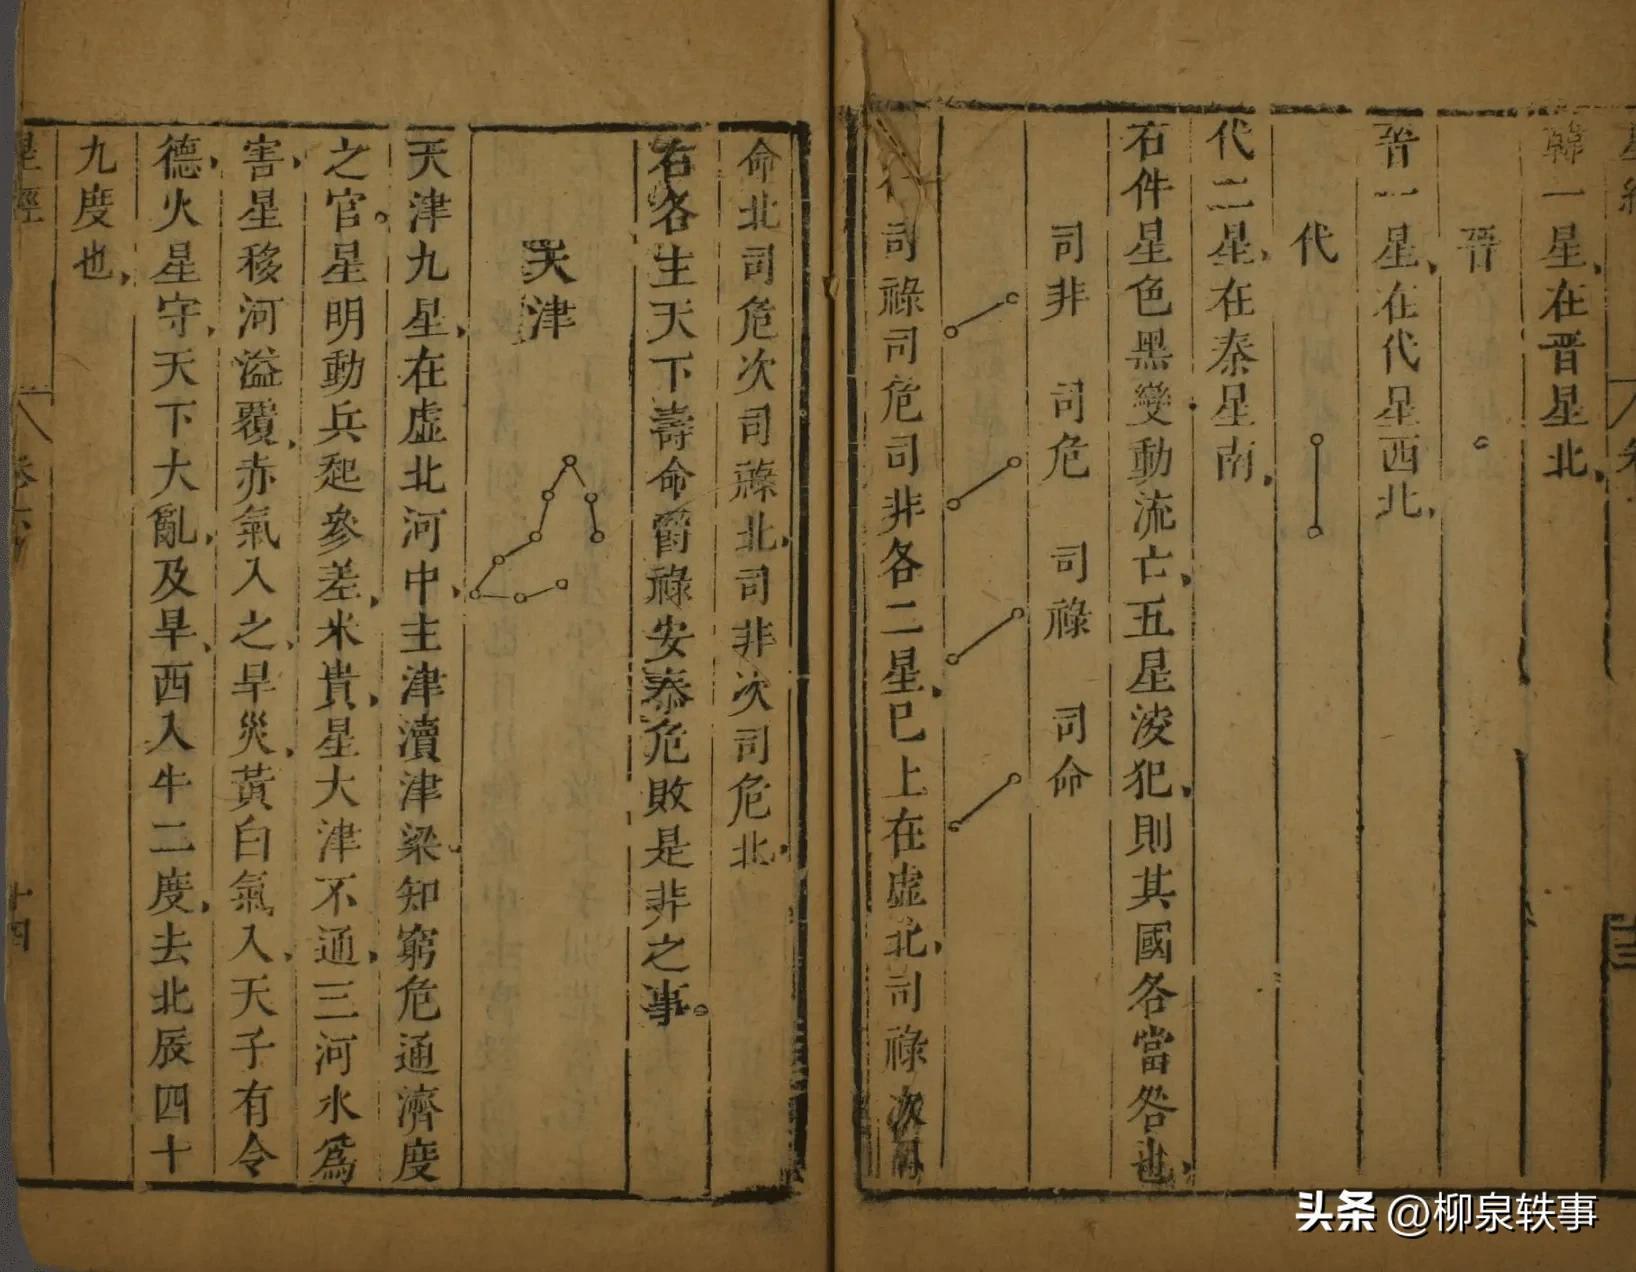 韓一星在晋星北
晋
晋一星在代星西北
代
代二星在秦星南
右件星色黑變動流亡五星淩犯則其國各當咎也
司非 司危 司祿 司命
司祿司危司非各二星已上在虛北司祿次司
命北司危次司祿北司非次司危北
右各主天下壽命爵祿安泰危敗是非之事
天津
天津九星在虛北河中主津瀆津梁知窮危通濟度
之官星明動兵起參差米貴星大津不通三河水爲
害星移河溢覆赤氣入之旱災黃白氣入天子有令
德火星守天下大亂及旱西入牛二度去北辰四十
九度也
星經
十四
头条 @柳泉轶事